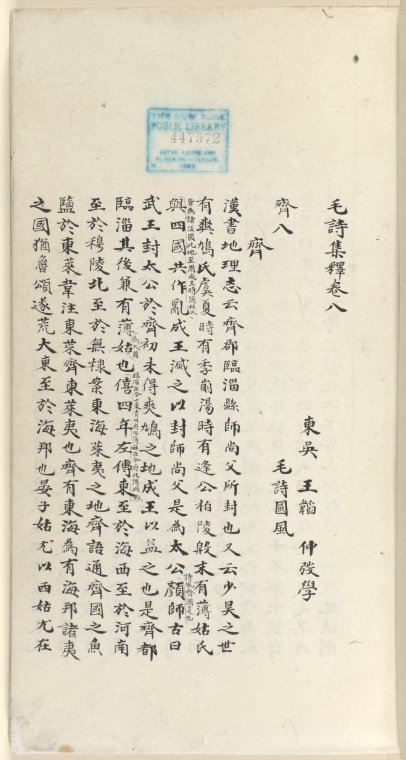 THE NEW YORK
PUBLIC LIBRARY
447372
ASTOR, LENOX AND
TILDEN FOUNDATIONS
毛詩集釋卷八
東吳 王韜 仲弢學
齊八 毛詩國風
齊
漢書地理志云齊郡臨淄縣師尚父所封也又云少昊之世
有爽鳩氏虞夏時有季崱湯時有逢公柏陵殷末有薄姑氏
與四國共作亂成王滅之以封師尚父是為太公顏師古曰
武王封太公於齊初未得爽鳩之地成王以益之也是齊都
臨淄其後兼有薄姑也僖四年左傳東至於海西至於河南
至於穆陵北至於無棣案東海萊夷之地齊語通齊國之魚
鹽於東萊韋注東萊齊東萊夷也齊有東海為有海邦諸夷
之國猶魯頌遂荒大東至於海邦也晏子姑尤以西姑尤在